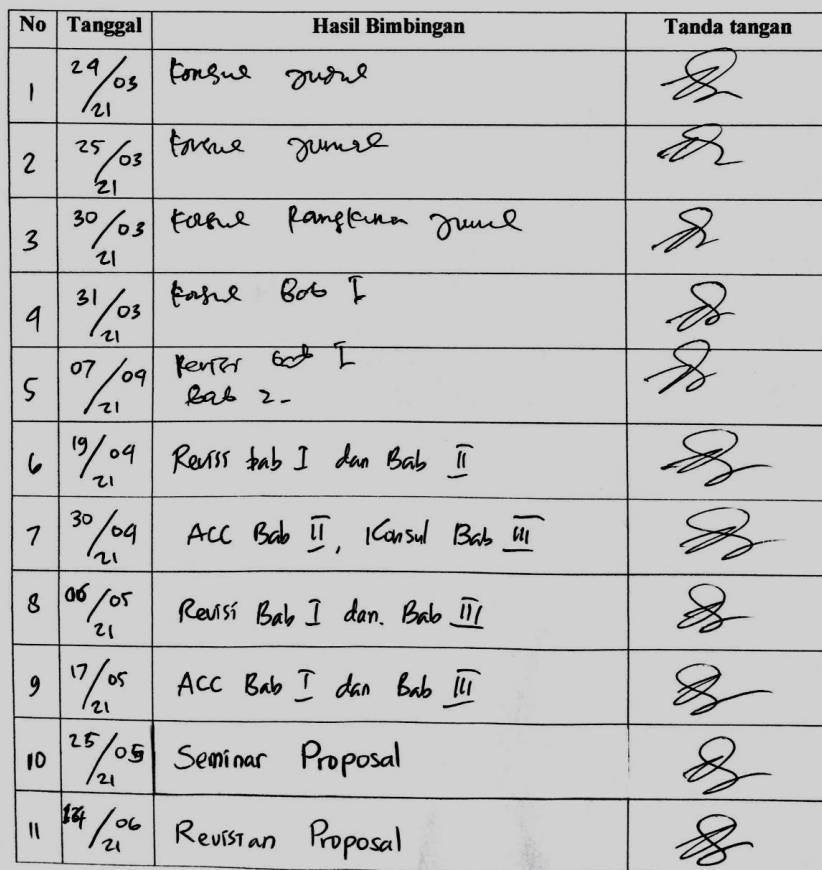 No Tanggal Hasil Bimbingan Tanda tangan
1 24/03/21 Konsul Judul
2 25/03/21 Konsul Jurnal
3 30/03/21 Konsul Rangkuman Jurnal
4 31/03/21 Konsul Bab I
5 07/04/21 Revisi Bab I
Bab 2-
6 19/04/21 Revisi bab I dan Bab II
7 30/04/21 ACC Bab II, Konsul Bab III
8 06/05/21 Revisi Bab I dan. Bab III
9 17/05/21 ACC Bab I dan Bab III
10 25/05/21 Seminar Proposal
11 /06/21 Revisian Proposal